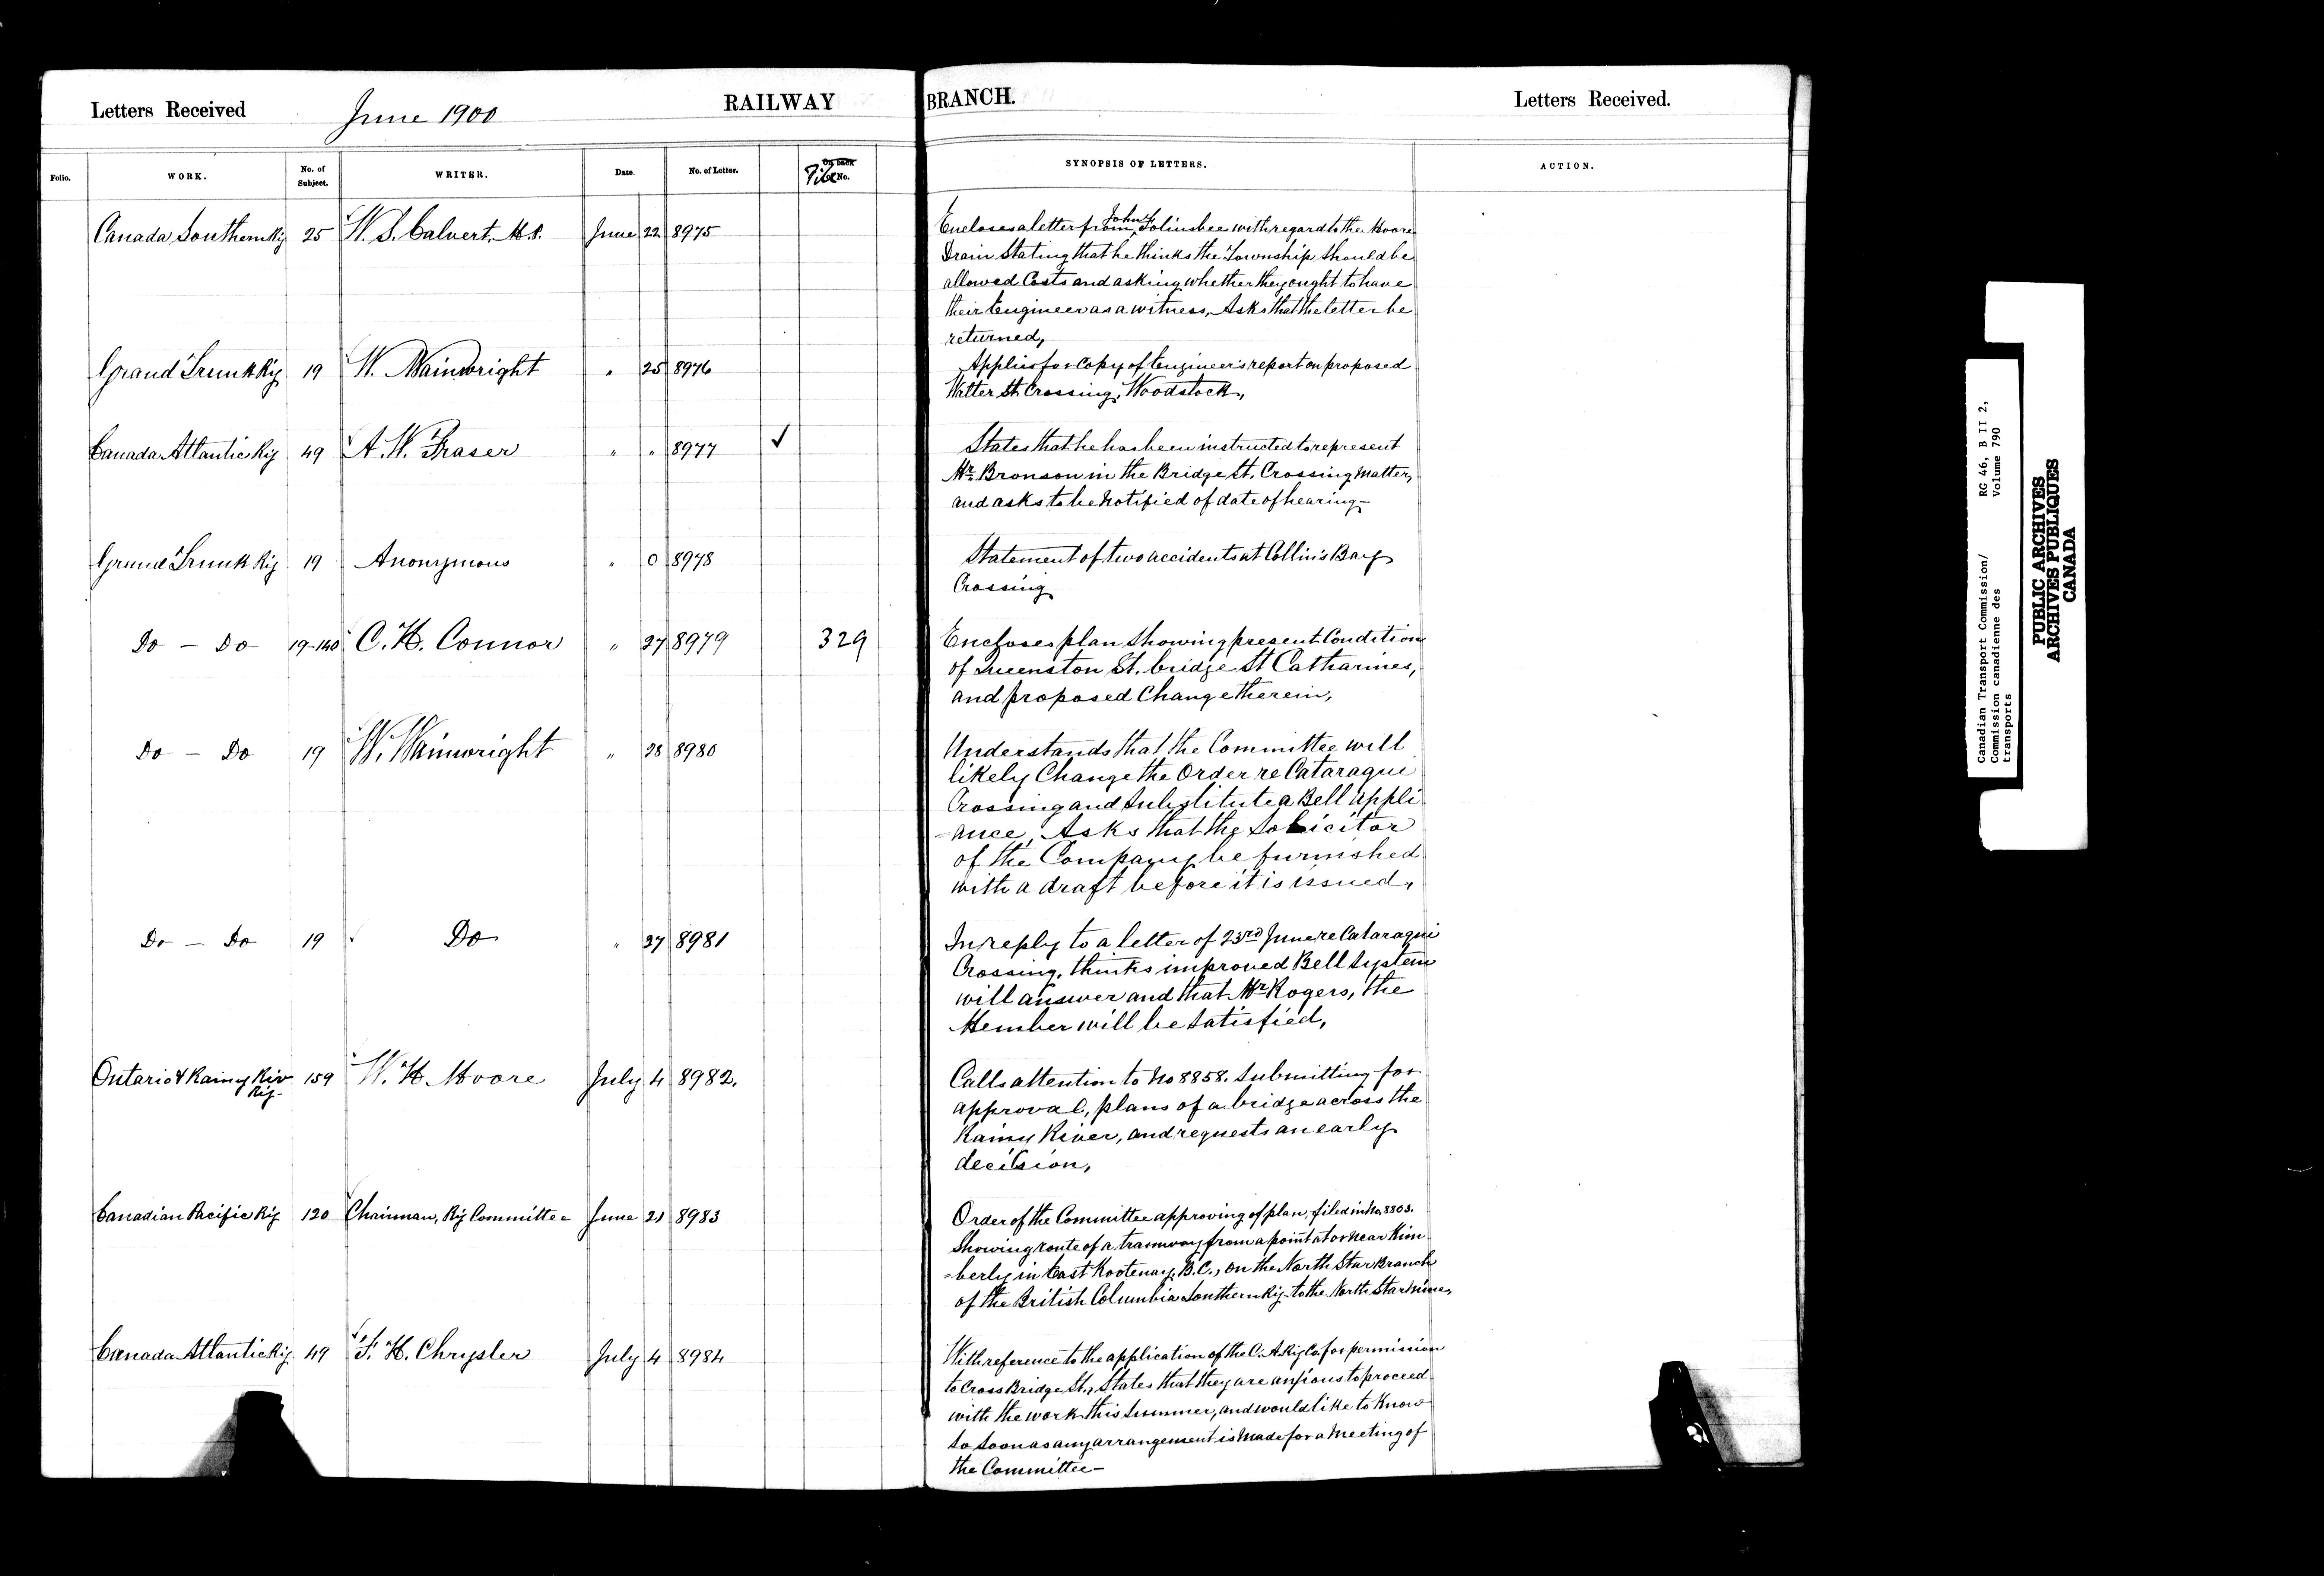 Letters Received June 1900 RAILWAY BRANCH. Letters Received.
Folio. WORK. No. of Subject. WRITER. Date. No. of Letter. On back File No. SYNOPSIS OF LETTERS. ACTION.
Canada Southern Ry 25 W. S. Calvert. M.P. June 22 8975
Encloses a letter from John F. Tolinsbee with regard to the Moore
Drain Stating that he thinks the Township should be
allowed Costs and asking whether they ought to have
their Engineer as a witness, Asks that the letter be
returned,
Grand Trunk Ry 19 W. Wainwright " 25 8976
Applies for Copy of Engineer's report on proposed
Watter St. Crossing, Woodstock,
Canada Atlantic Ry 49 A. W. Fraser " " 8977 ✓
States that he has been instructed to represent
Mr. Bronson in the Bridge St. Crossing Matter,
and asks to be notified of date of hearing—
Grand Trunk Ry 19 Anonymous " 0 8978
Statement of two accidents at Collin's Bay
Crossing
Do — Do 19-140 C. H. Connor " 27 8979 329
Encloses plan showing present Condition
of Queenston St. bridge St Catharines,
and proposed Change therein,
Do — Do 19 W. Wainwright " 28 8980
Understands that the Committee will
likely Change the Order re Cataraqui
Crossing and Substitute a Bell appli
-ance, Asks that the Solicitor
of the Company be furnished
with a draft before it is issued,
Do — Do 19 Do " 27 8981
In reply to a letter of 23rd June re Cataraqui
Crossing, thinks improved Bell System
will answer and that Mr. Rogers, the
Member will be Satisfied,
Ontario & Rainy Riv Ry- 159 W. H. Moore July 4 8982.
Calls attention to No 8858. Submitting for
approval, plans of a bridge across the
Rainy River, and requests an early
decision,
Canadian Pacific Ry 120 Chairman, Ry Committee June 21 8983
Order of the Committee approving of plan, filed in No. 8803.
Showing route of a tramway from a point at or near Kim
-berly in East Kootenay, B.C., on the North Star Branch
of the British Columbia Southern Ry- to the North Star Mine,
Canada Atlantic Ry. 49 F. H. Chrysler July 4 8984
With reference to the application of the C. A. Ry Co. for permission
to Cross Bridge St., States that they are anxious to proceed
with the work this Summer, and would like to know
so soon as any arrangement is made for a Meeting of
the Committee—
Canadian Transport Commission/ RG 46, B II 2,
Commission canadienne des Volume 790
transports
PUBLIC ARCHIVES
ARCHIVES PUBLIQUES
CANADA